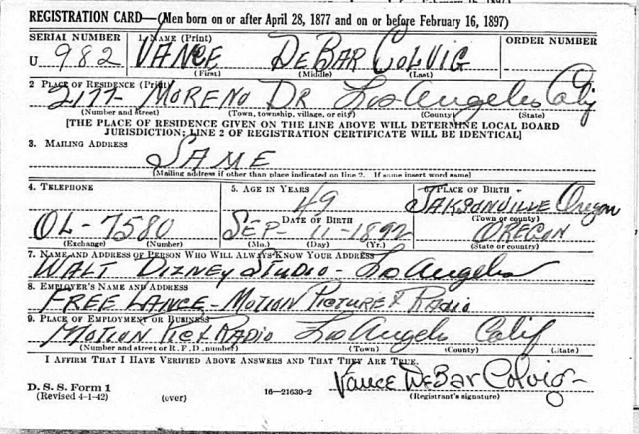 REGISTRATION CARD—(Men born on or after April 28, 1877 and on or before February 16, 1897)
SERIAL NUMBER 1. NAME (Print) ORDER NUMBER
U 982 VANCE DEBAR COLVIG
(First) (Middle) (Last)
2 PLACE OF RESIDENCE (Print)
2177 MORENO DR Los Angeles Calif
(Number and street) (Town, township, village, or city) (County) (State)
[THE PLACE OF RESIDENCE GIVEN ON THE LINE ABOVE WILL DETERMINE LOCAL BOARD
JURISDICTION; LINE 2 OF REGISTRATION CERTIFICATE WILL BE IDENTICAL]
3. MAILING ADDRESS
SAME
[Mailing address if other than place indicated on line 2. If same insert word same]
4. TELEPHONE 5. AGE IN YEARS 6. PLACE OF BIRTH
49 JAKSONVILLE Oregon
DATE OF BIRTH (Town or county)
OL-7580 SEP- 11-1892 OREGON
(Exchange) (Number) (Mo.) (Day) (Yr.) (State or country)
7. NAME AND ADDRESS OF PERSON WHO WILL ALWAYS KNOW YOUR ADDRESS
WALT DIZNEY STUDIO- Los Angeles
8. EMPLOYER'S NAME AND ADDRESS
FREE LANCE- MOTION PICTURE & RADIO
9. PLACE OF EMPLOYMENT OR BUSINESS
MOTION PIC & RADIO Los Angeles Calif
(Number and street or R. F. D. number) (Town) (County) (State)
I AFFIRM THAT I HAVE VERIFIED ABOVE ANSWERS AND THAT THEY ARE TRUE.
Vance DeBar Colvig-
D. S. S. Form 1
(Revised 4-1-42) (over) 16—21630-2 (Registrant's signature)